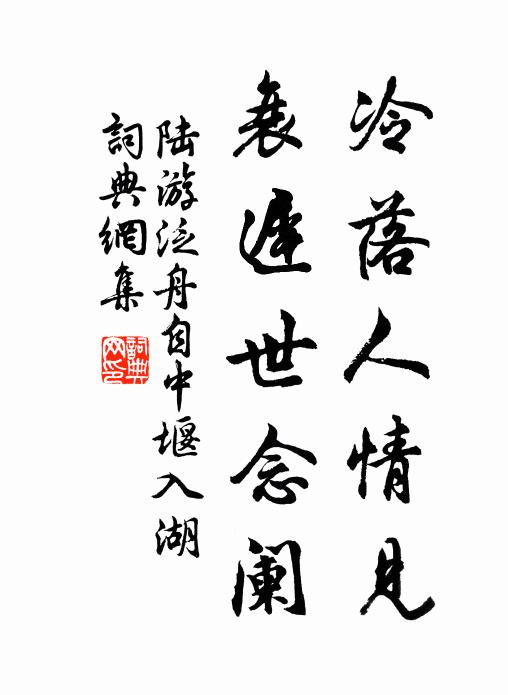 冷落人情見
衰遲世念阑
陆游泛舟自中堰入湖
詞典網集
詞典网印